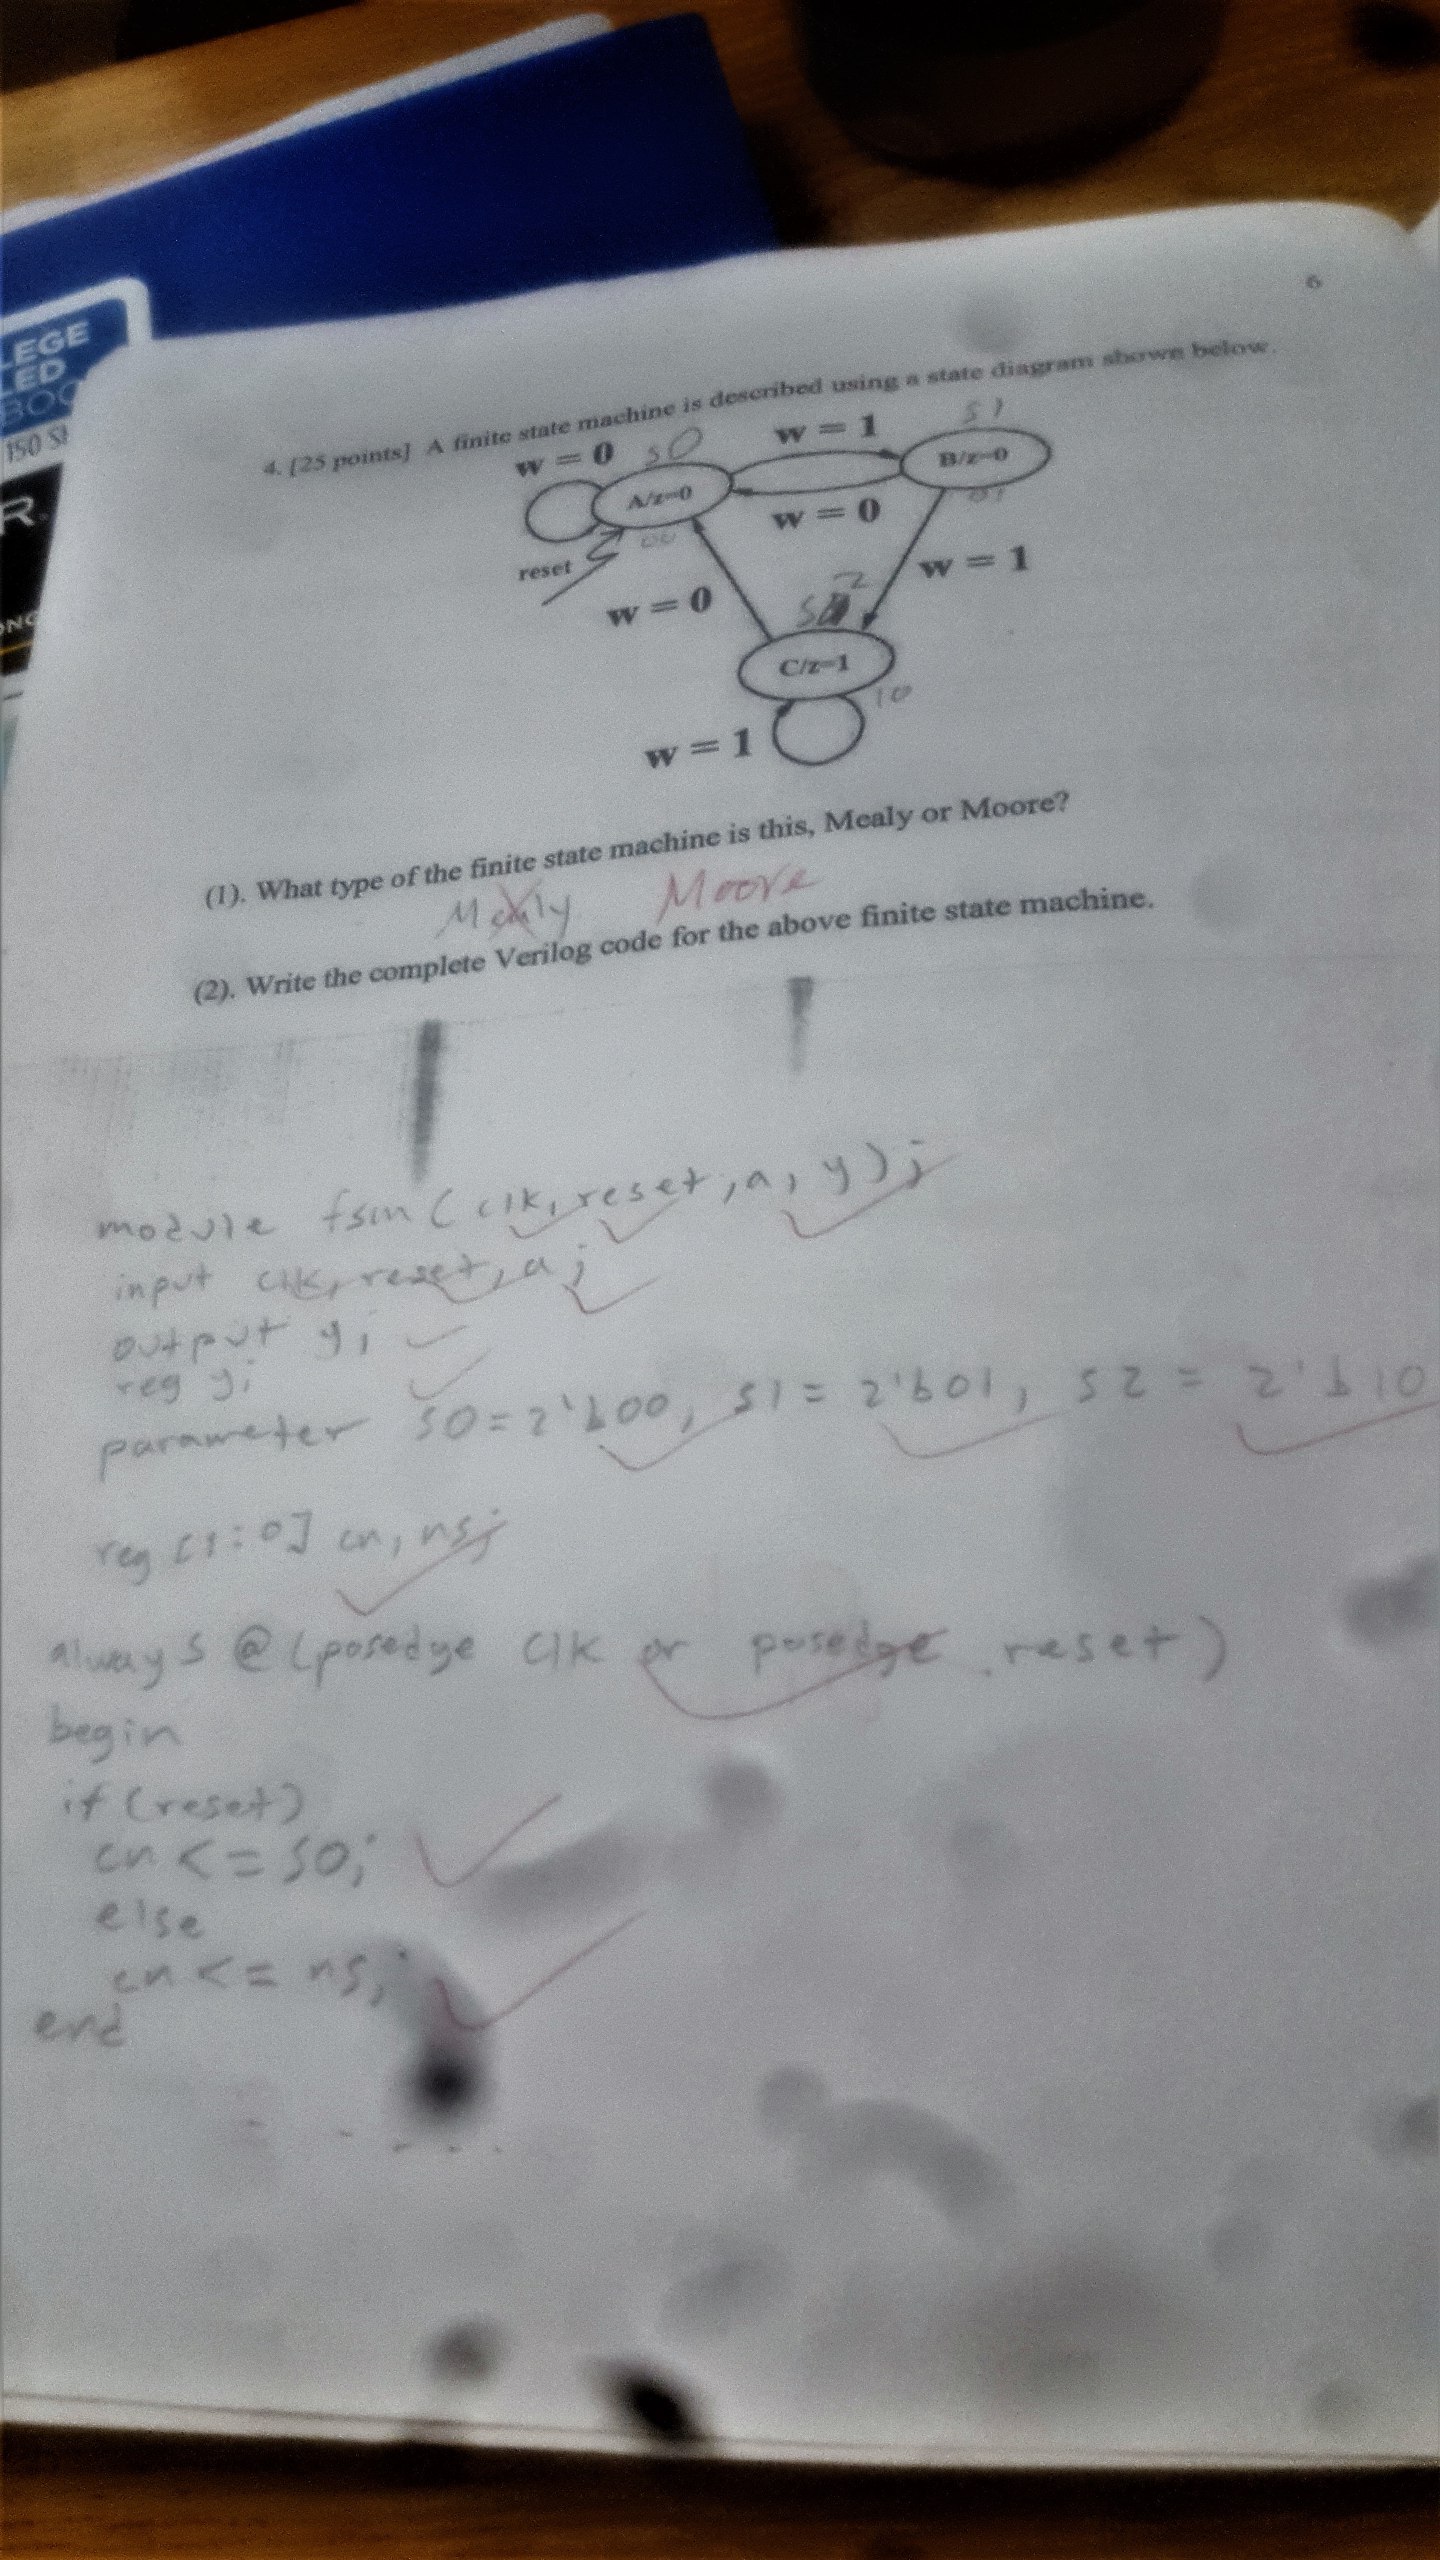 LEGE
LED
BOO
150 S
R
ONG
6
4. [25 points] A finite state machine is described using a state diagram shown below.
w = 0
S0
w = 1
S1
A/z=0
B/z=0
00
01
w = 0
reset
w = 0
w = 1
S 2
C/z=1
10
w = 1
(1). What type of the finite state machine is this, Mealy or Moore?
Mealy Moore
(2). Write the complete Verilog code for the above finite state machine.
module fsm (clk, reset, a, y);
input clk, reset, a;
output y;
reg y;
parameter S0=2'b00, S1=2'b01, S2=2'b10
reg [1:0] cn, ns;
always @ (posedge clk or posedge reset)
begin
if (reset)
cn <= S0;
else
cn <= ns;
end